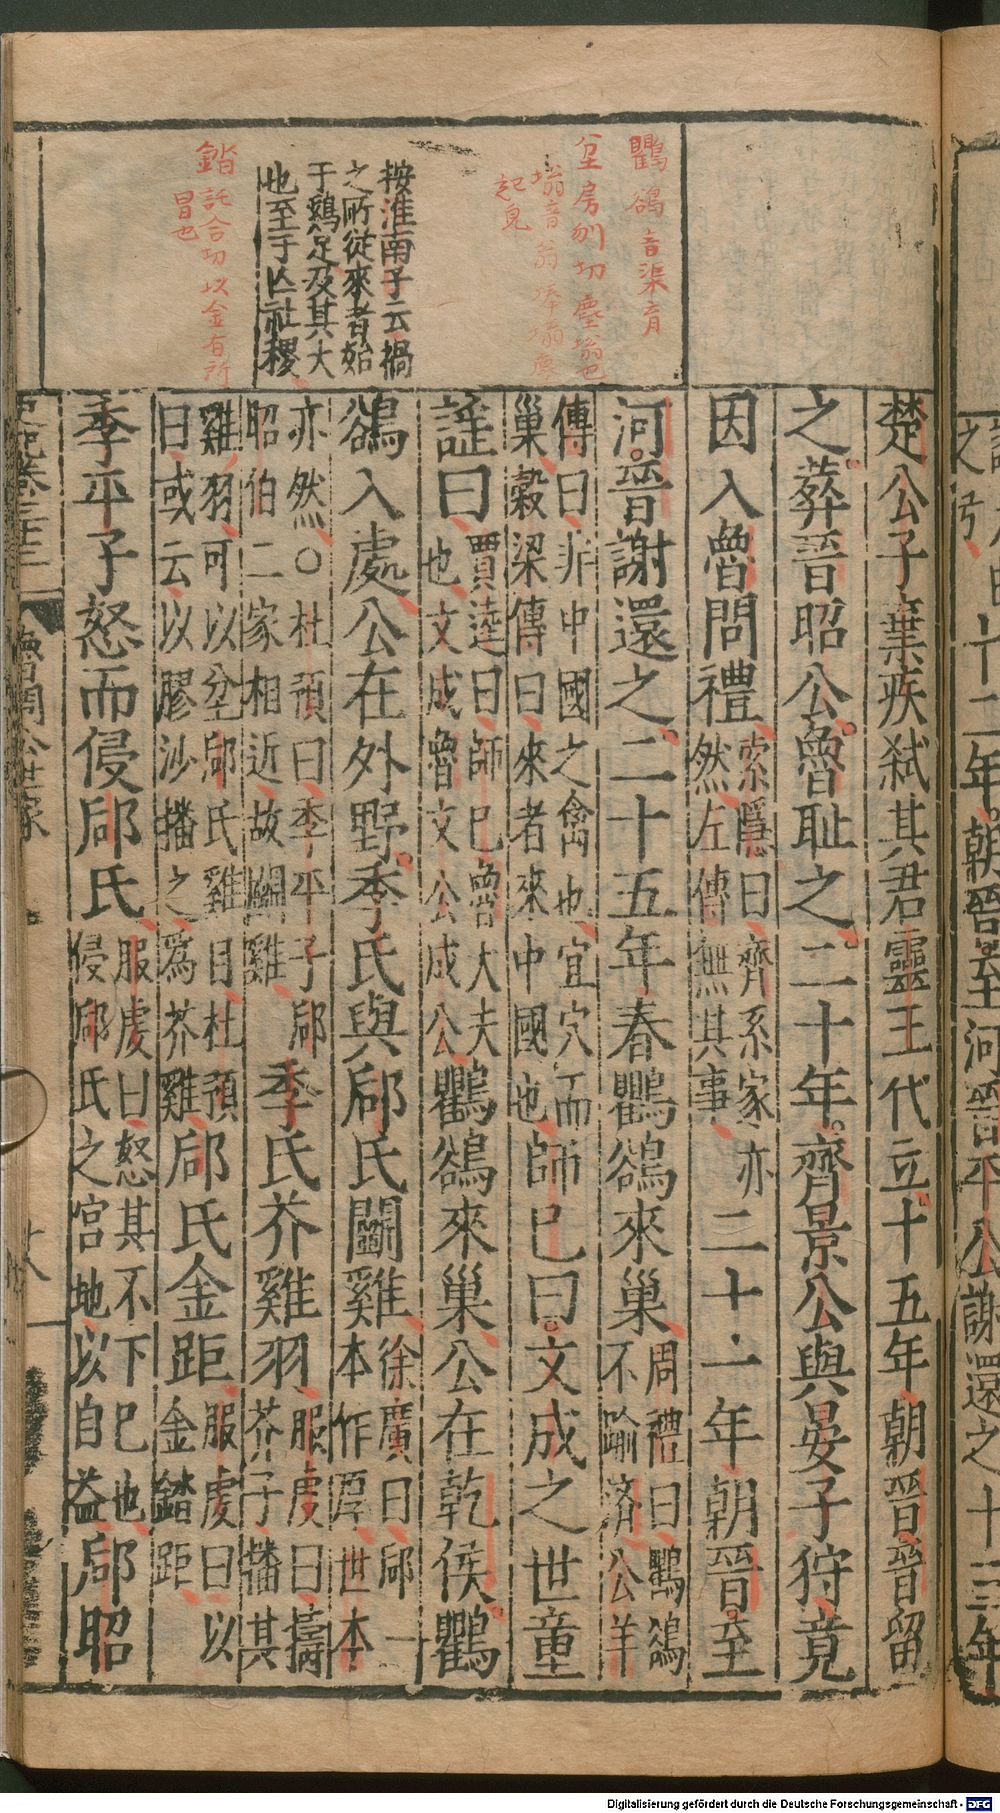 鸜鵒音渠育
坌房刎切塵塕也
塕音翁
起皃
按淮南子云禍
之所從來者始
于鷄足及其大
也至于亾社稷
錔託合切以金有所
冒也
楚公子棄疾弑其君靈王代立十五年朝晉晉留
之葬晉昭公魯耻之二十年齊景公與晏子狩竟
因入魯問禮
索隱曰齊系家亦
然左傳無其事
二十一年朝晉至
河晉謝還之二十五年春鸜鵒來巢
周禮曰鸜鵒
不踰濟公羊
傳曰非中國之禽也宜穴而
巢榖梁傳曰來者來中國也
師已曰文成之世童
謡曰
賈逵曰師已魯大夫
也文成魯文公成公
鸜鵒來巢公在乾侯鸜
鵒入處公在外野季氏與郈氏鬭雞
徐廣曰郈一
本作厚世本
亦然○杜預曰季平子郈
昭伯二家相近故鬭雞
季氏芥雞羽
服虔曰擣
芥子播其
雞羽可以坌郈氏雞目杜預
曰或云以膠沙播之爲芥雞
郈氏金距
服虔曰以
金錔距
季平子怒而侵郈氏
服虔曰怒其不下已也
侵郈氏之宫地以自益
郈昭
史記卷三十三
魯周公世家
十八
年朝晉至河晉平公謝還之十三年
Digitalisierung gefördert durch die Deutsche Forschungsgemeinschaft - DFG